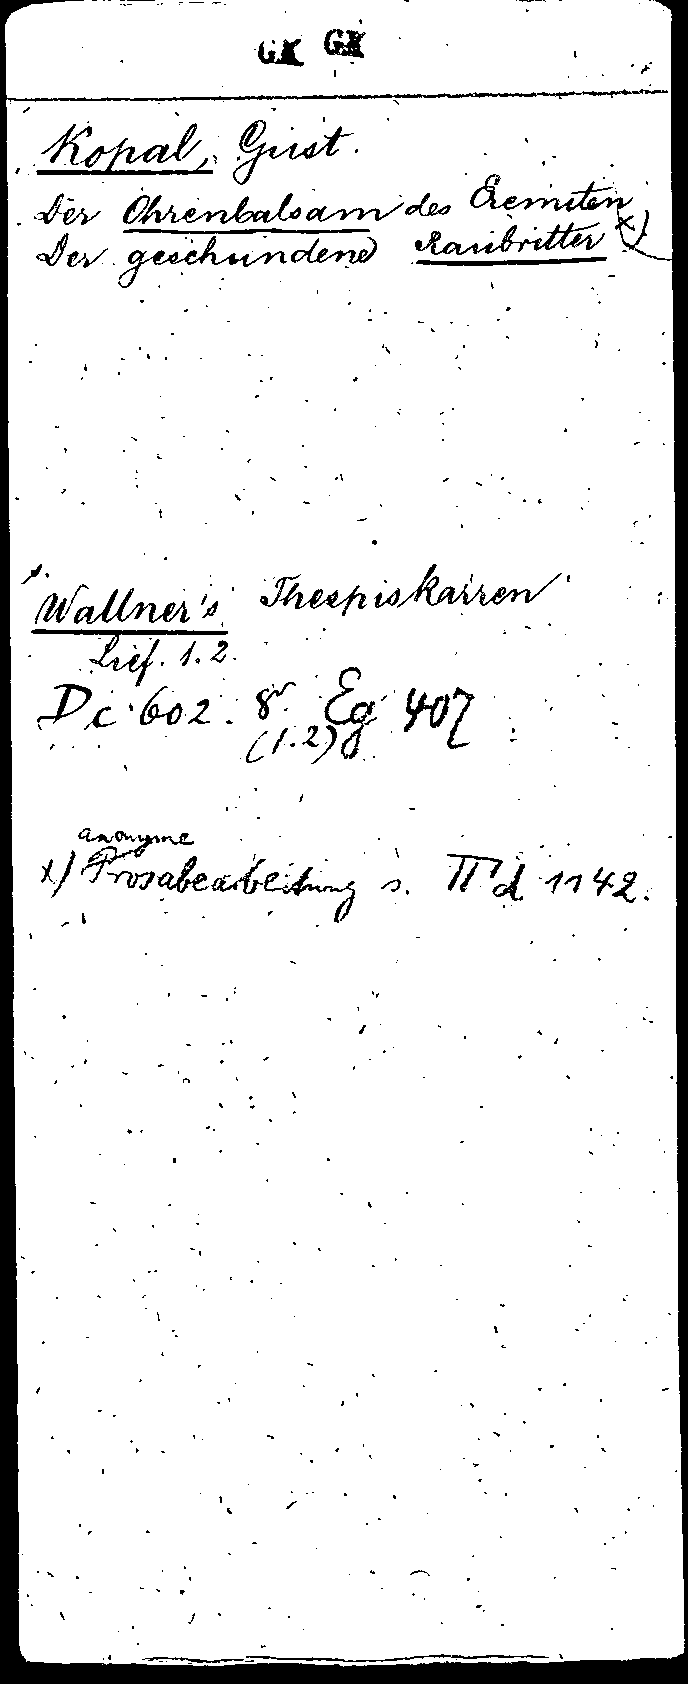 GK GK
Kopal, Gust.
Der Ohrenbalsam des Eremiten
Der geschundene Raubritter x)
Wallner's Thespiskarren
Lief. 1. 2.
Dc 602. 8° Eg 407
(1.2)
anonyme
x) Prosabearbeitung s. II d 1142.